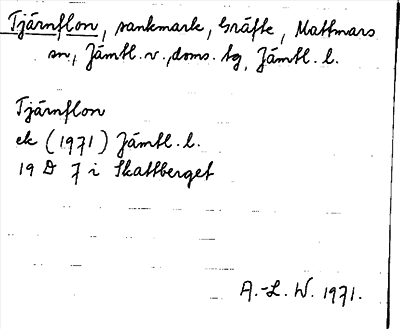 Tjärnflon, sankmark, Gräfte, Mattmars
sn, Jämtl. v. doms. tg, Jämtl. l.
Tjärnflon
ek (1971) Jämtl. l.
19 D 7 i Skattberget
A.-L. W. 1971.